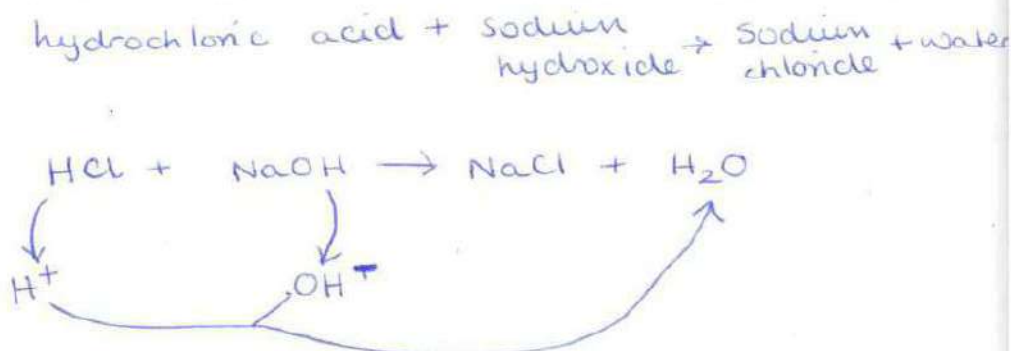 hydrochloric acid + sodium hydroxide → sodium chloride + water
HCl + NaOH → NaCl + H₂O
H⁺ OH⁻